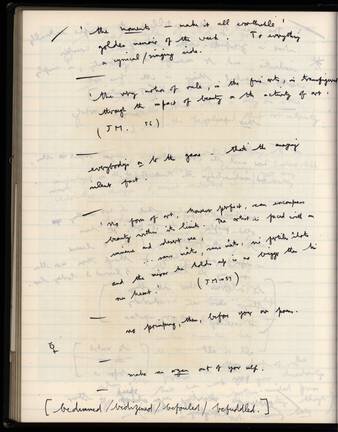 ' the moments — make it all worthwhile '
golden memoir of the week. To everything
a cynical / singing side.
—
' the very notion of rules, in the fine arts, is transfigured
through the impact of beauty on the activity of art.
(J M. 56)
—
everybody's on to the game that the
silent part.
—
' No form of art, however perfect, can encompass
beauty within its limits. The artist is faced with an
immense and desert sea,
... sans
and the mirror he holds up to it is no bigger than his
own heart.' (JM—
—
no primping, then, before your own poem.
—
make an open out of your self.
—
[ bedimmed / bedizened / befouled / befuddled. ]